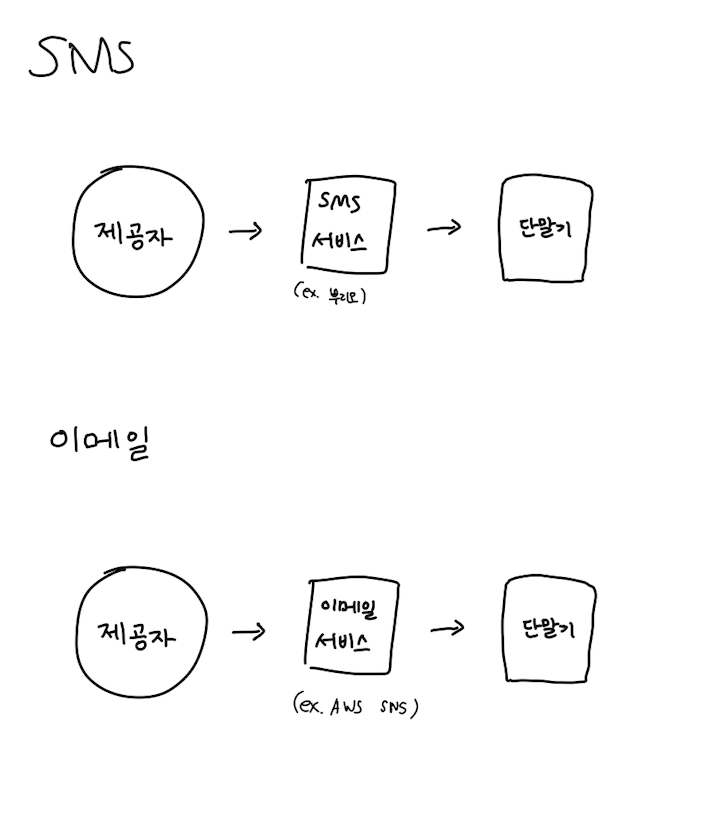 SMS
제공자
SMS
서비스
단말기
(ex. 뿌리오)
이메일
제공자
이메일
서비스
단말기
(ex. AWS SNS)